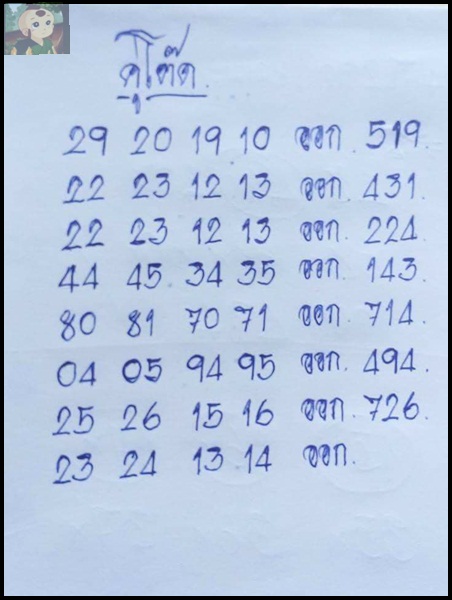 คู่โต๊ด
29 20 19 10 ออก. 519.
22 23 12 13 ออก. 431.
22 23 12 13 ออก. 224.
44 45 34 35 ออก. 143.
80 81 70 71 ออก. 714.
04 05 94 95 ออก. 494.
25 26 15 16 ออก. 726.
23 24 13 14 ออก.